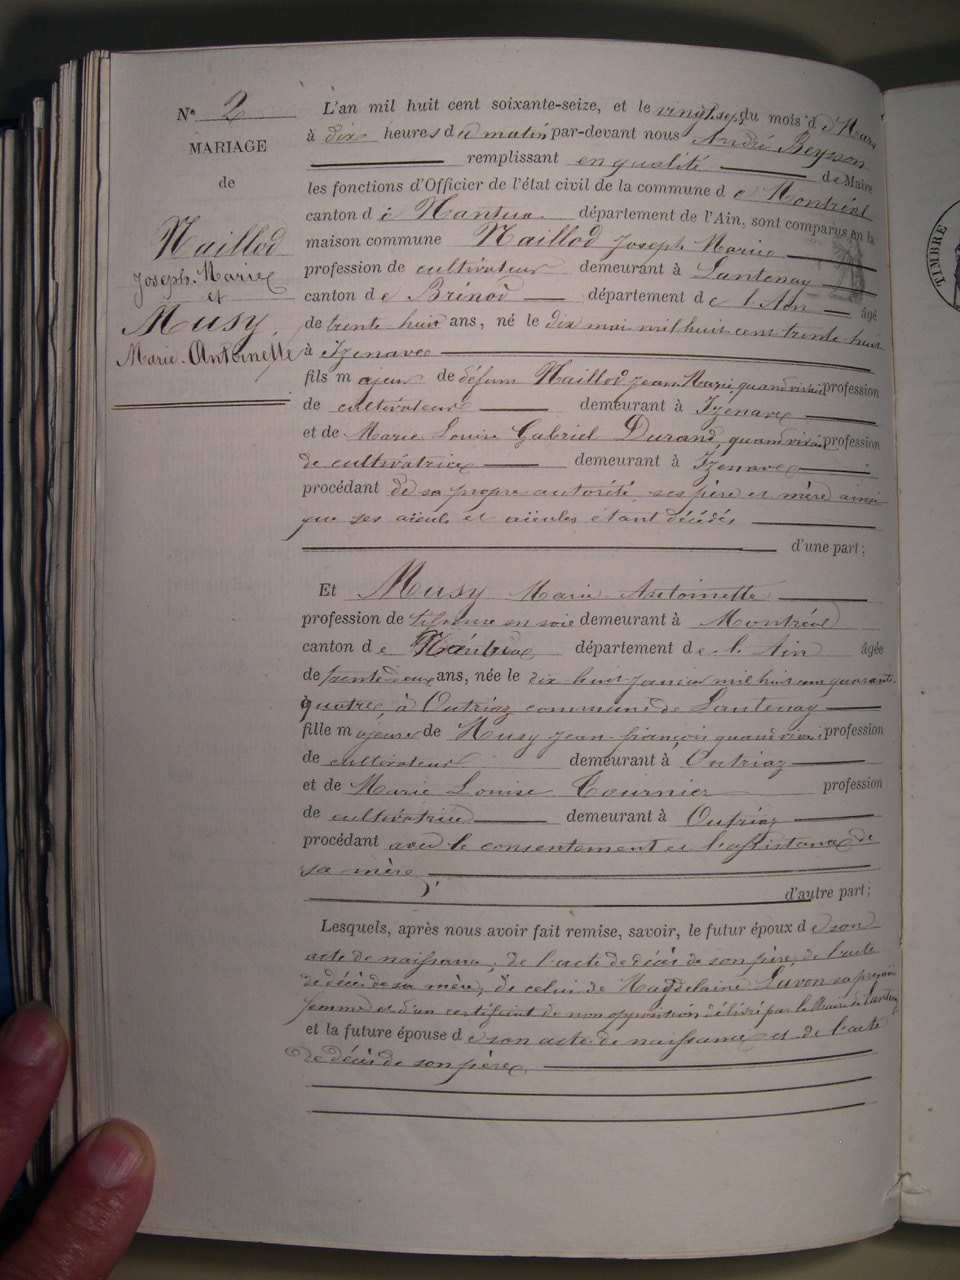 N° 2
MARIAGE
de
Maillod
Joseph-Marie
et
Musy,
Marie-Antoinette
L'an mil huit cent soixante-seize, et le vingt-sept du mois d e Mars
à dix heures d u matin par-devant nous André Beysson
remplissant en qualité de Maire
les fonctions d'Officier de l'état civil de la commune d e Montréal
canton d e Nantua département de l'Ain, sont comparus en la
maison commune Maillod Joseph Marie
profession de cultivateur demeurant à Lantenay
canton d e Brénod département d e l'Ain âgé
de trente-huit ans, né le dix mai mil huit cent trente-huit
à Izenave
fils m ajeur de défunt Maillod Jean Marie quand vivait profession
de cultivateur demeurant à Izenave
et de Marie Louise Gabriel Durand, quand vivait profession
de cultivatrice demeurant à Izenave
procédant de sa propre autorité, ses père et mère ainsi
que ses aïeuls et aïeules étant décédés
d'une part;
Et Musy Marie Antoinette
profession de en soie demeurant à Montréal
canton d e Nantua département d e l'Ain âgée
de trente-deux ans, née le dix-huit janvier mil huit cent quarante-
quatre, à Outriaz commune de Lantenay
fille m ajeure de Musy Jean-françois quand vivait profession
de cultivateur demeurant à Outriaz
et de Marie Louise Tournier profession
de cultivatrice demeurant à Outriaz
procédant avec le consentement et l'assistance de
sa mère
d'autre part;
Lesquels, après nous avoir fait remise, savoir, le futur époux d e son
acte de naissance, de l'acte de décès de son père, de l'acte
de décès de sa mère, de celui de Magdelaine Savon sa première
femme et d'un certificat de non opposition délivré par le Maire de Lantenay
et la future épouse d e son acte de naissance et de l'acte
de décès de son père,
TIMBRE